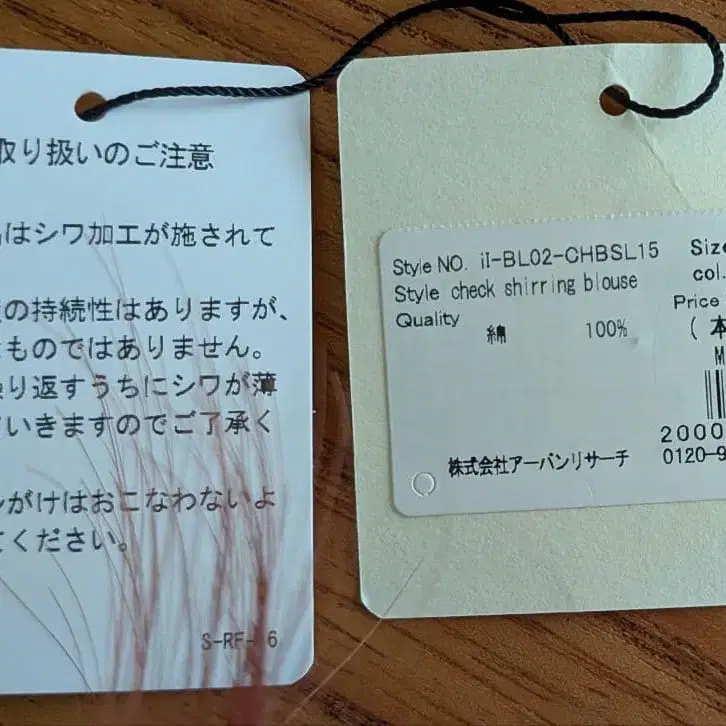 取り扱いのご注意
はシワ加工が施されて
の持続性はありますが、
ものではありません。
り返すうちにシワが薄
いきますのでご了承く
がけはおこなわないよ
ください。
S-RF- 6
Style NO. iI-BL02-CHBSL15
Style check shirring blouse
Quality
綿 100%
株式会社アーバンリサーチ
Size
col.
Price
(本
M
2000
0120-9